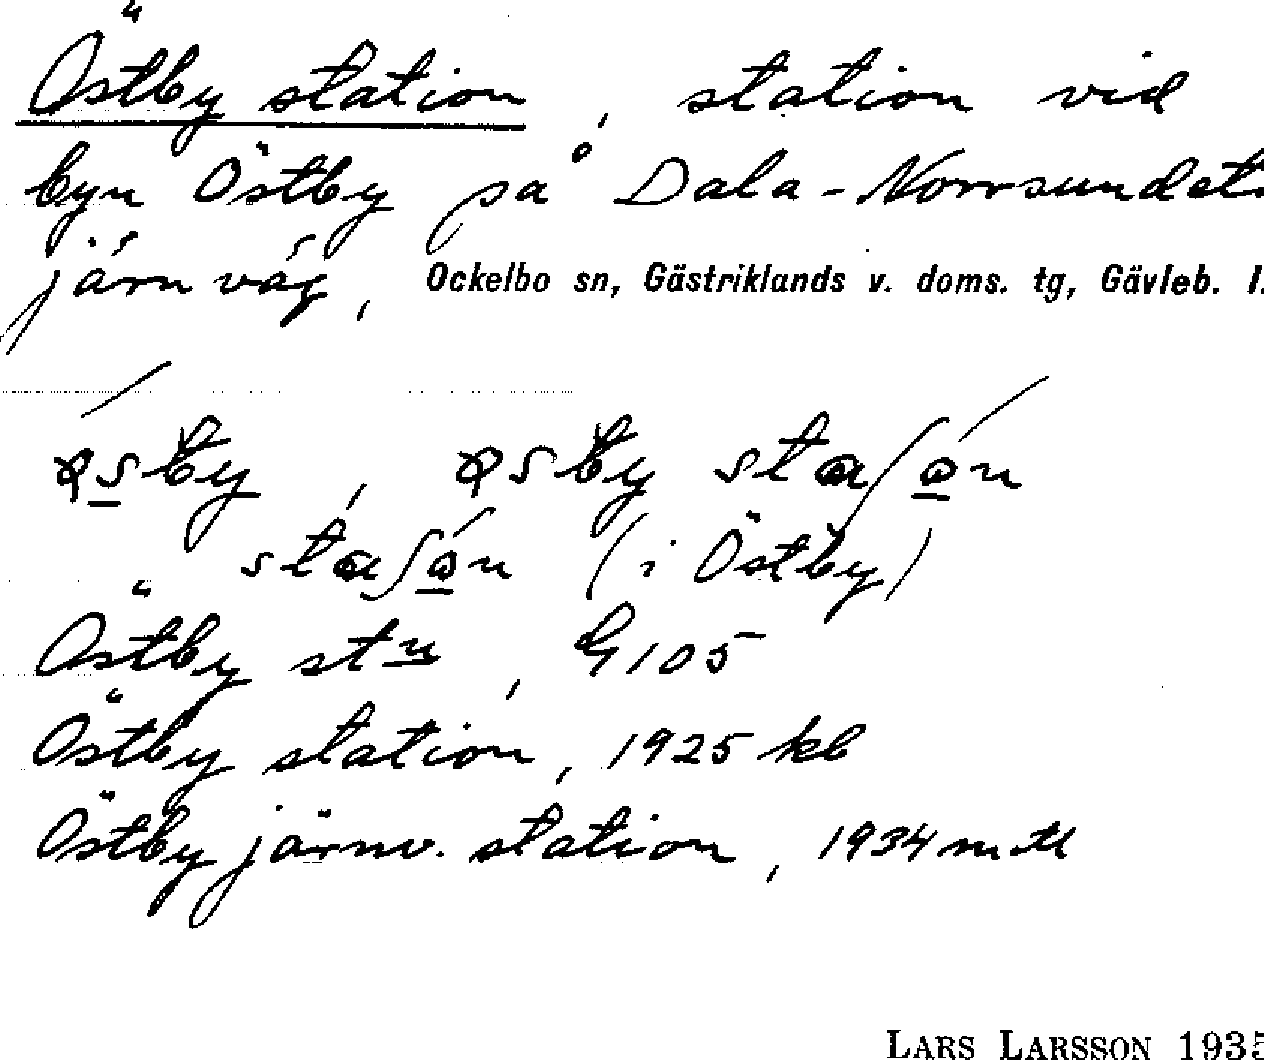 Östby station, station vid
byn Östby på Dala-Norrsundets
järnväg, Ockelbo sn, Gästriklands v. doms. tg, Gävleb. l.
stn (i Östby)
Östby stn, G105
Östby station, 1925 kb
Östby järnv. station, 1934 mtl
LARS LARSSON 1935